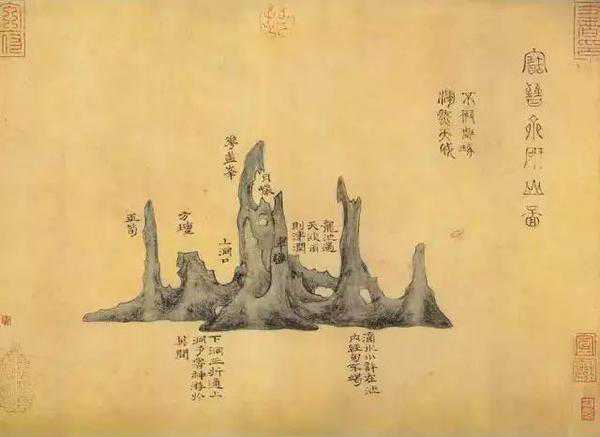 寶晉齋研山圖
不假雕琢
渾然天成
龍池遇
天欲雨
則津潤
翠巒
月巖
華蓋峯
上洞口
方壇
玉筍
滴水小許在池
內經旬不竭
下洞三折通上
洞予嘗神游於
其間